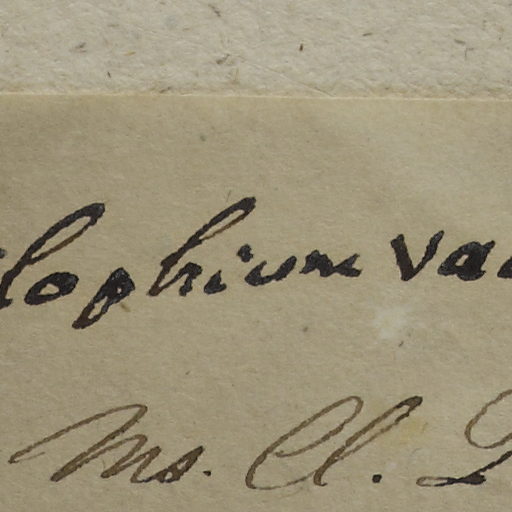 ilophium va
Ms. Cl.